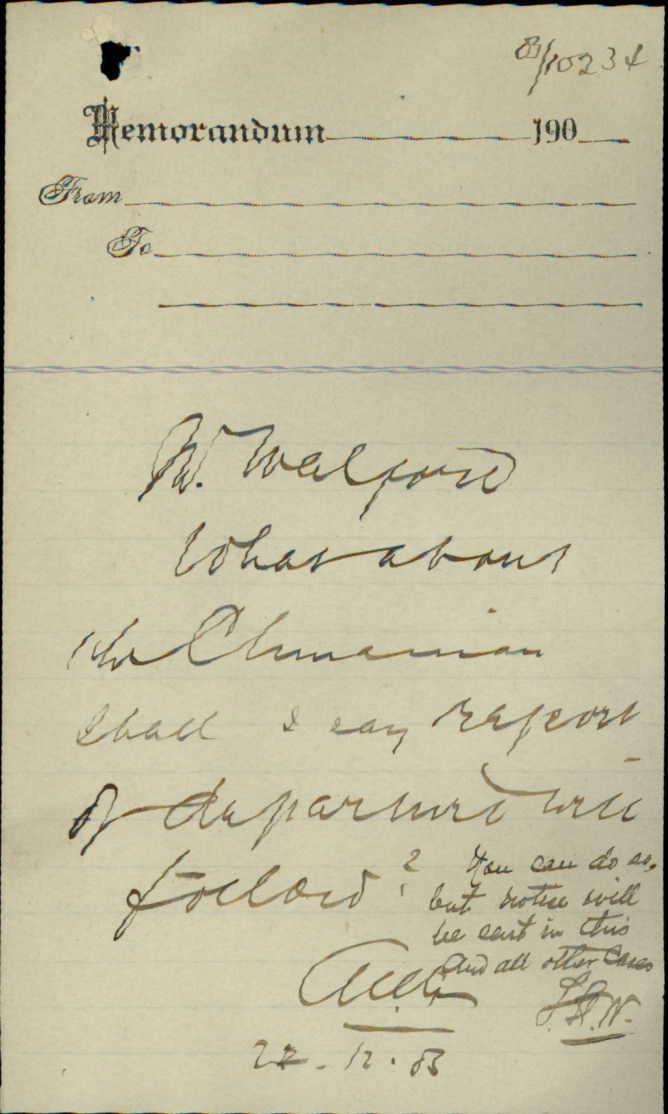 03/10234
Memorandum 190
From
To
Mr. Walford
What about
the Chinaman
shall I say report
of departure will
follow?
You can do so,
but notice will
be sent in this
and all other cases
F.H.W.
22.12.03